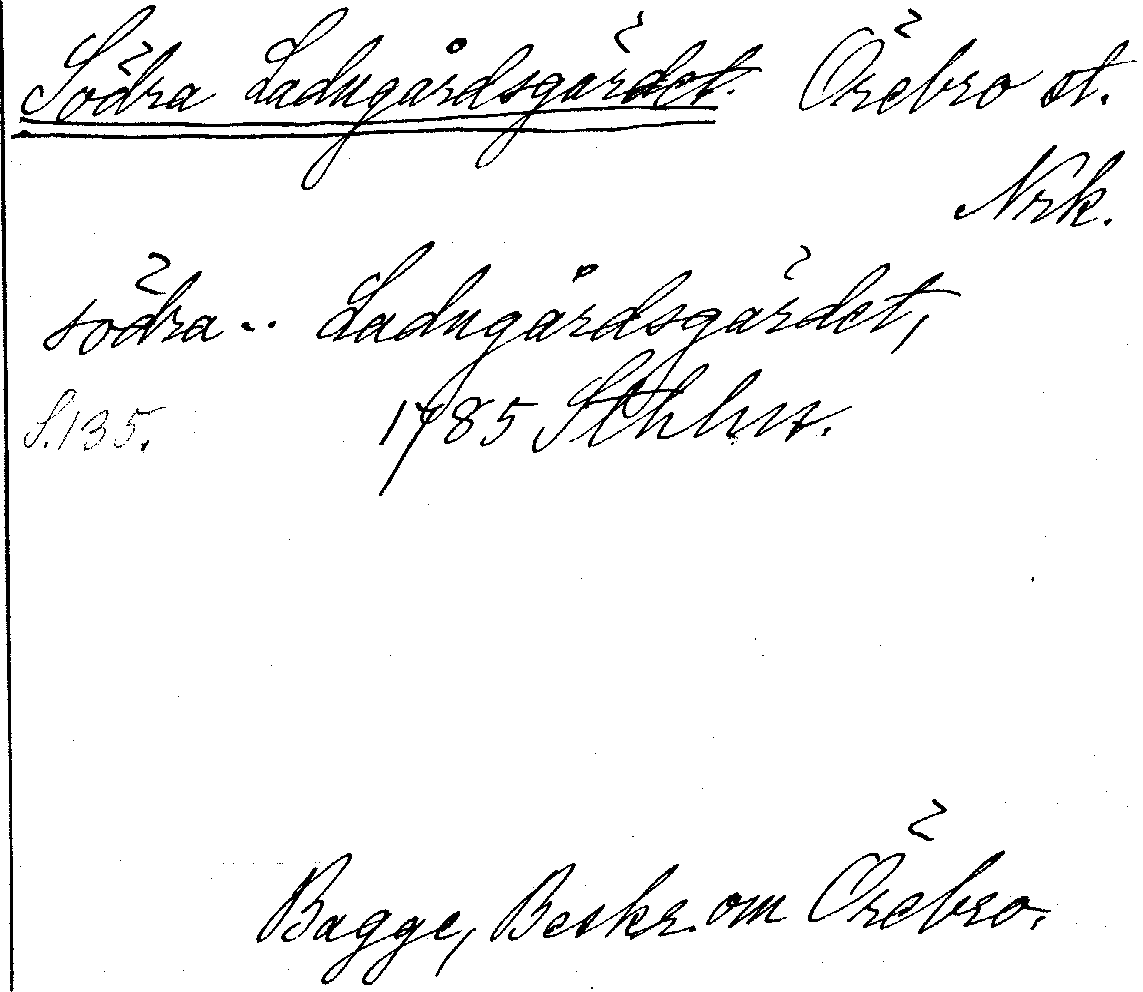 Södra Ladugårdsgärdet. Örebro st.
Nrk.
södra .. Ladugårdsgärdet,
S. 135. 1785 Sthlm.
Bagge, Beskr. om Örebro.